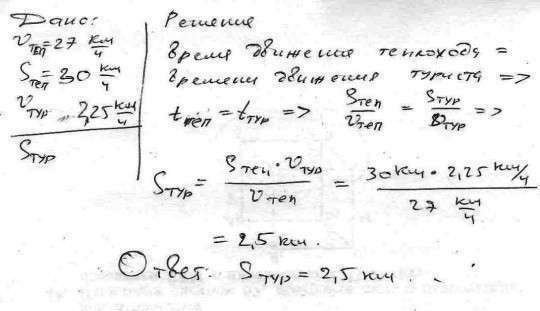 Дано:
υтеп=27 км/ч
Sтеп=30 км/ч
υтур 2,25 км/ч
Sтур
Решение
Время движения теплохода =
времени движения туриста =>
tтеп = tтур => Sтеп/υтеп = Sтур/υтур =>
Sтур = Sтеп·υтур/υтеп = 30 км · 2,25 км/ч / 27 км/ч
= 2,5 км.
Ответ: Sтур = 2,5 км.